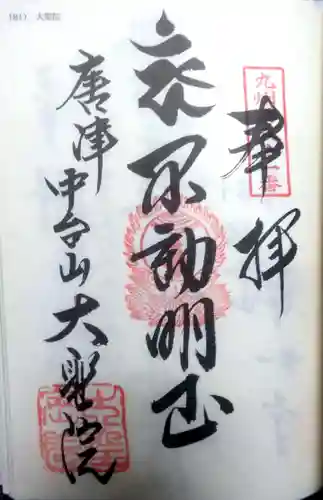 (81) 大聖院
奉拝
不動明王
唐津 中台山 大聖院